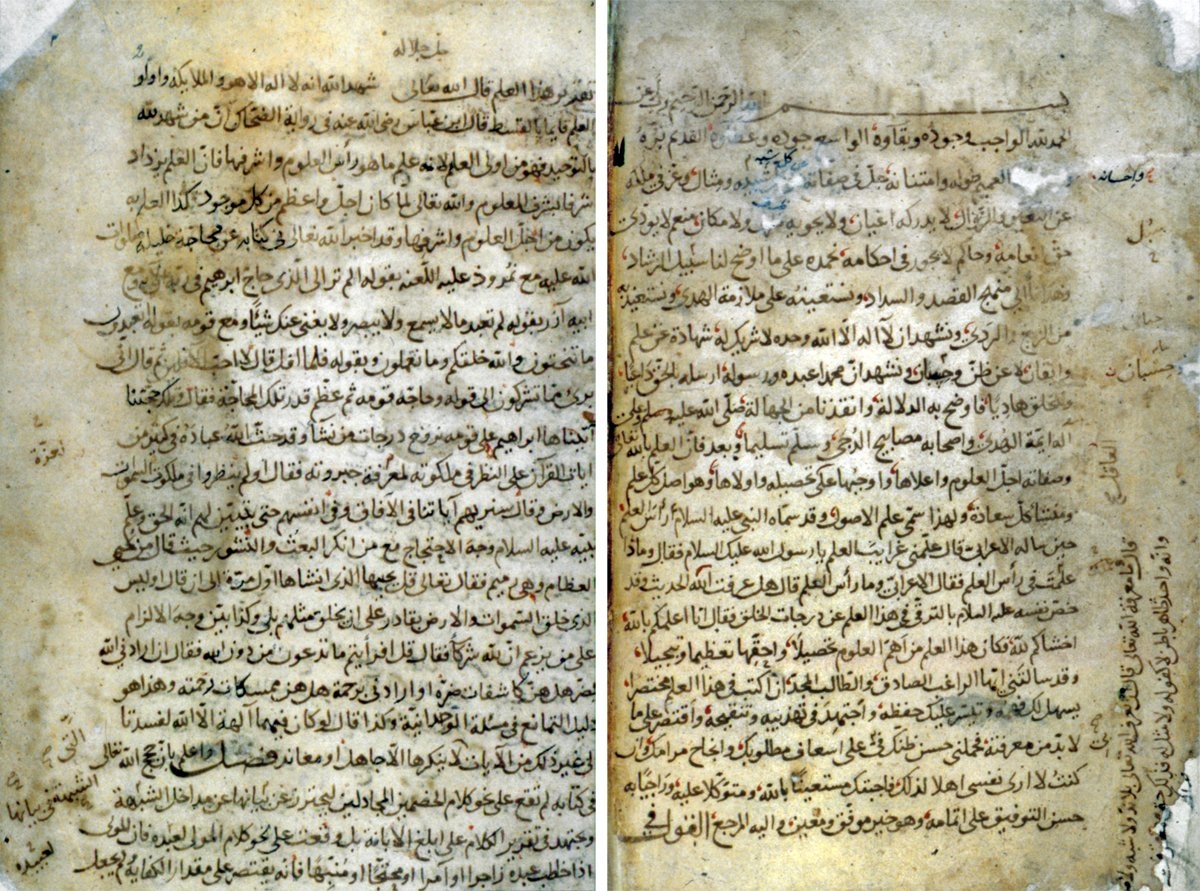 بسم الله الرحمن الرحيم
الحمد لله الواجب وجوده وبقاوه الواسع جوده وعطاوه القديم بره
واحسانه
العميم طوله وامتنانه جل في صفاته عن شبيه ومثال وعز في ملكه
عن لا يدركه اعيان ولا يحويه ولا مكان منعم لا يودى
حق نعامه وحاكم لا يجور في احكامه نحمده على ما اوضح لنا سبيل الرشاد
وهدانا الى منهج القصد والسداد ونستعينه على ملازمة الهدى ونستعيذ به
من الزيغ والردى ونشهد ان لا اله الا الله وحده لا شريك له شهادة عن علم
وايقان لا عن ظن وحسبان ونشهد ان محمدا عبده ورسوله ارسله بالحق داعيا
وللخلق هاديا فاوضح به الدلالة وانقذنا من الجهالة صلى الله عليه وعلى
اله ايمة الهدى واصحابه مصابيح الدجى وسلم تسليما وبعد فان العلم بالله تعالى
وصفاته اجل العلوم واعلاها واوجبها على تحصيله واولاها وهو اصل كل علم
ومنشا كل سعادة ولهذا سمي علم الاصول وقد سماه النبي عليه السلام راس العلم
حين ساله الاعرابي قال علمني غرايب العلم يا رسول الله عليك السلام فقال وماذا
علمت في رأس العلم فقال الاعرابي وما رأس العلم قال هل عرفت الله الحديث وقد
خص نفسه عليه السلام بالترقي في هذا العلم عن درجات الخلق فقال انا اعلمكم بالله
اخشاكم لله فكان هذا العلم من اهم العلوم تحصيلا واحقها تعظيما وتبجيلا
وقد سالتني ايها الراغب الصادق والطالب المجد ان اكتب في هذا العلم مختصرا
يسهل لك ويتيسر عليك حفظه واجتهد في تهذيبه وتنقيحه واقتصر على ما
لا بد من معرفته فحملني حسن ظنك في على اسعاف مطلوبك وانجاح مرامك وان
كنت لا ارى نفسي اهلا لذلك فاجبتك مستعينا بالله ومتوكلا عليه وراجيا به
حسن التوفيق على اتمامه وهو خير موفق ومعين واليه المرجع القول في
جل جلاله
هذا العلم قال الله تعالى شهد الله انه لا اله الا هو والملايكة واولو
العلم قايما بالقسط قال ابن عباس رضي الله عنه في رواية الضحاك ان من شهد لله
بالتوحيد فهو من اولى العلم لانه علم ما هو رأس العلوم واشرفها فان العلم يزداد
شرفا بشرف المعلوم والله تعالى لما كان اجل واعظم من كل موجود كذا العلم به
يكون من اجل العلوم واشرفها وقد اخبر الله تعالى في كتابه عن محاجة خليله صلوات
الله عليه مع نمروذ عليه اللعنة بقوله الم تر الى الذي حاج ابرهيم في ربه
ابيه آزر بقوله لم تعبد ما لا يسمع ولا يبصر ولا يغني عنك شيئا ومع قومه بقوله اتعبدون
ما تنحتون والله خلقكم وما تعملون وبقوله فلما افل قال لا احب الافلين ثم قال اني
برئ مما تشركون الى قوله وحاجه قومه ثم عظم قدر تلك المحاجة فقال وتلك حجتنا
آتيناها ابراهيم على قومه نرفع درجات من نشا وقد حث الله عباده في كثير من
ايات القرآن على النظر في ملكوته لمعرفة جبروته فقال اولم ينظروا في ملكوت السموات
والارض وقال سنريهم آياتنا في الآفاق وفي انفسهم حتى يتبين لهم انه الحق وعلم
نبيه عليه السلام وجه الاحتجاج مع من انكر البعث والنشور حيث قال من يحيي
العظام وهي رميم فقال تعالى قل يحييها الذي انشاها اول مرة الى ان قال اوليس
الذي خلق السموات والارض بقادر على ان يخلق مثلهم بلى وكذا بين وجه الالزام
على من يزعم ان لله شركا فقال قل افرأيتم ما تدعون من دون الله فقال ان ارادني الله
بضر هل هن كاشفات ضره او ارادني برحمة هل هن ممسكات رحمته وهذا هو
دليل التمانع في مسئلة الوحدانية وكذا قال لو كان فيهما آلهة الا الله لفسدتا
الى غير ذلك من الآيات لا ينكرها الا جاهل او معاند فصل واعلم بان حجج الله تعالى
في كتابه لم تقع على نحو كلام الخصمين المجادلين ليحترز عن مداخل الشبهة
ويجتهد في تقرير الكلام على ابلغ الابانة بل وقعت على نحو كلام المولى لعبيده فان المولى
اذا خاطب عبده زاجرا او آمرا او محتجا او منبها فانه يقتصر على مقدار الكفاية ولم يجعل